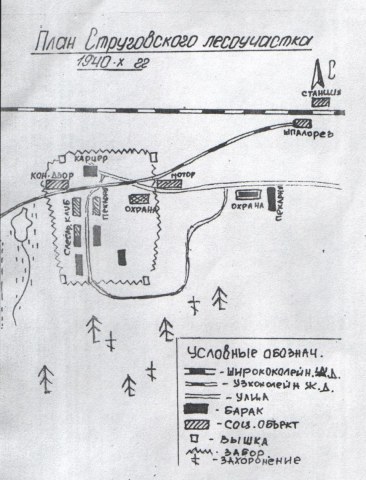 План Струговского лесоучастка
1940-х гг
С
СТАНЦИЯ
ШПАЛОРЕЗ
КАРЦЕР
КОН. ДВОР
МОТОР
КЛУБ
ОХРАНА
ОХРАНА
ПЕКАРНЯ
УСЛОВНЫЕ ОБОЗНАЧ.
- ШИРОКОКОЛЕЙН. Ж.Д.
- УЗКОКОЛЕЙН Ж.Д.
- УЛИЦА
- БАРАК
- СОЦ. ОБЪЕКТ
- ВЫШКА
- ЗАБОР
- ЗАХОРОНЕНИЕ